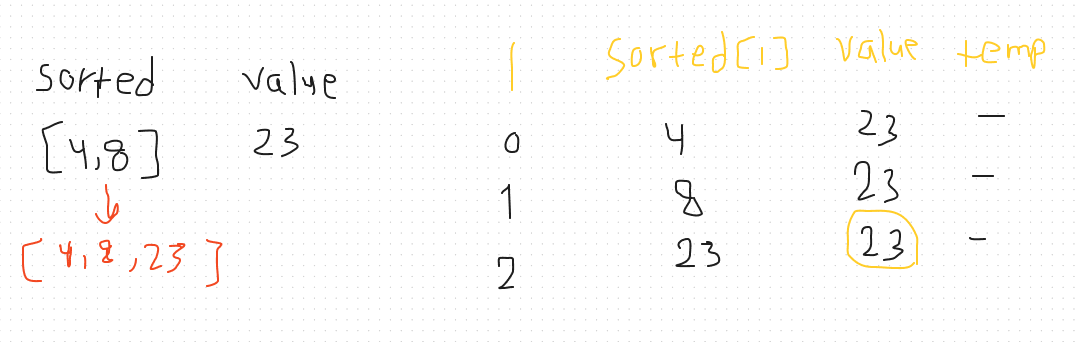 sorted value
[4,8] 23
[4,8,23]
i sorted[i] value temp
0 4 23 -
1 8 23 -
2 23 23 -